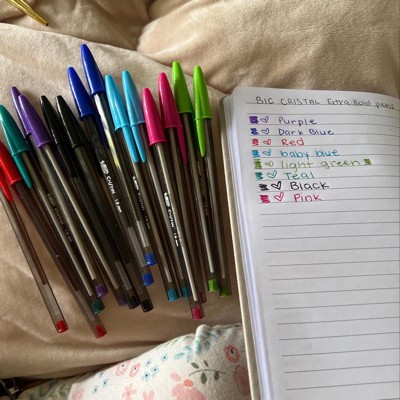 BIC CRISTAL Extra Bold pens
Purple
Dark Blue
Red
baby blue
light green
Teal
Black
Pink
BIC Cristal
BIC Cristal